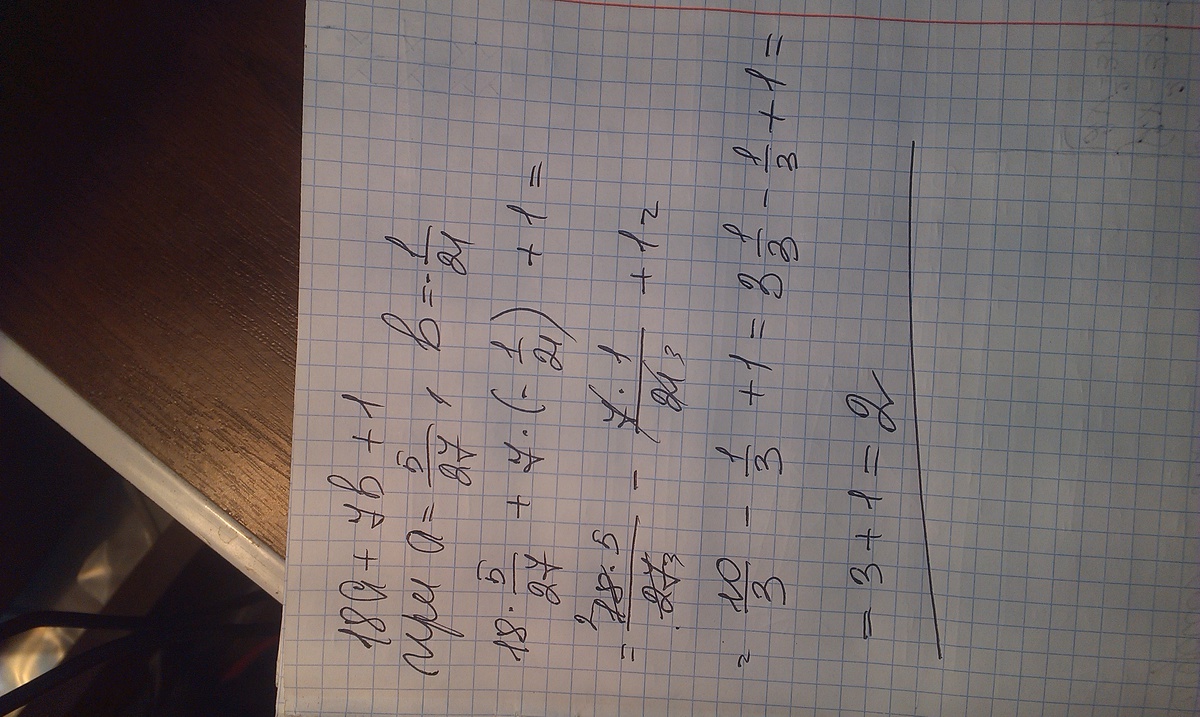 18a + 7b + 1
при a = 5/27, b = -1/21
18 · 5/27 + 7 · (-1/21) + 1 =
= (18 · 5)/27 - (7 · 1)/21 + 1 =
= 10/3 - 1/3 + 1 = 3 1/3 - 1/3 + 1 =
= 3 + 1 = 2